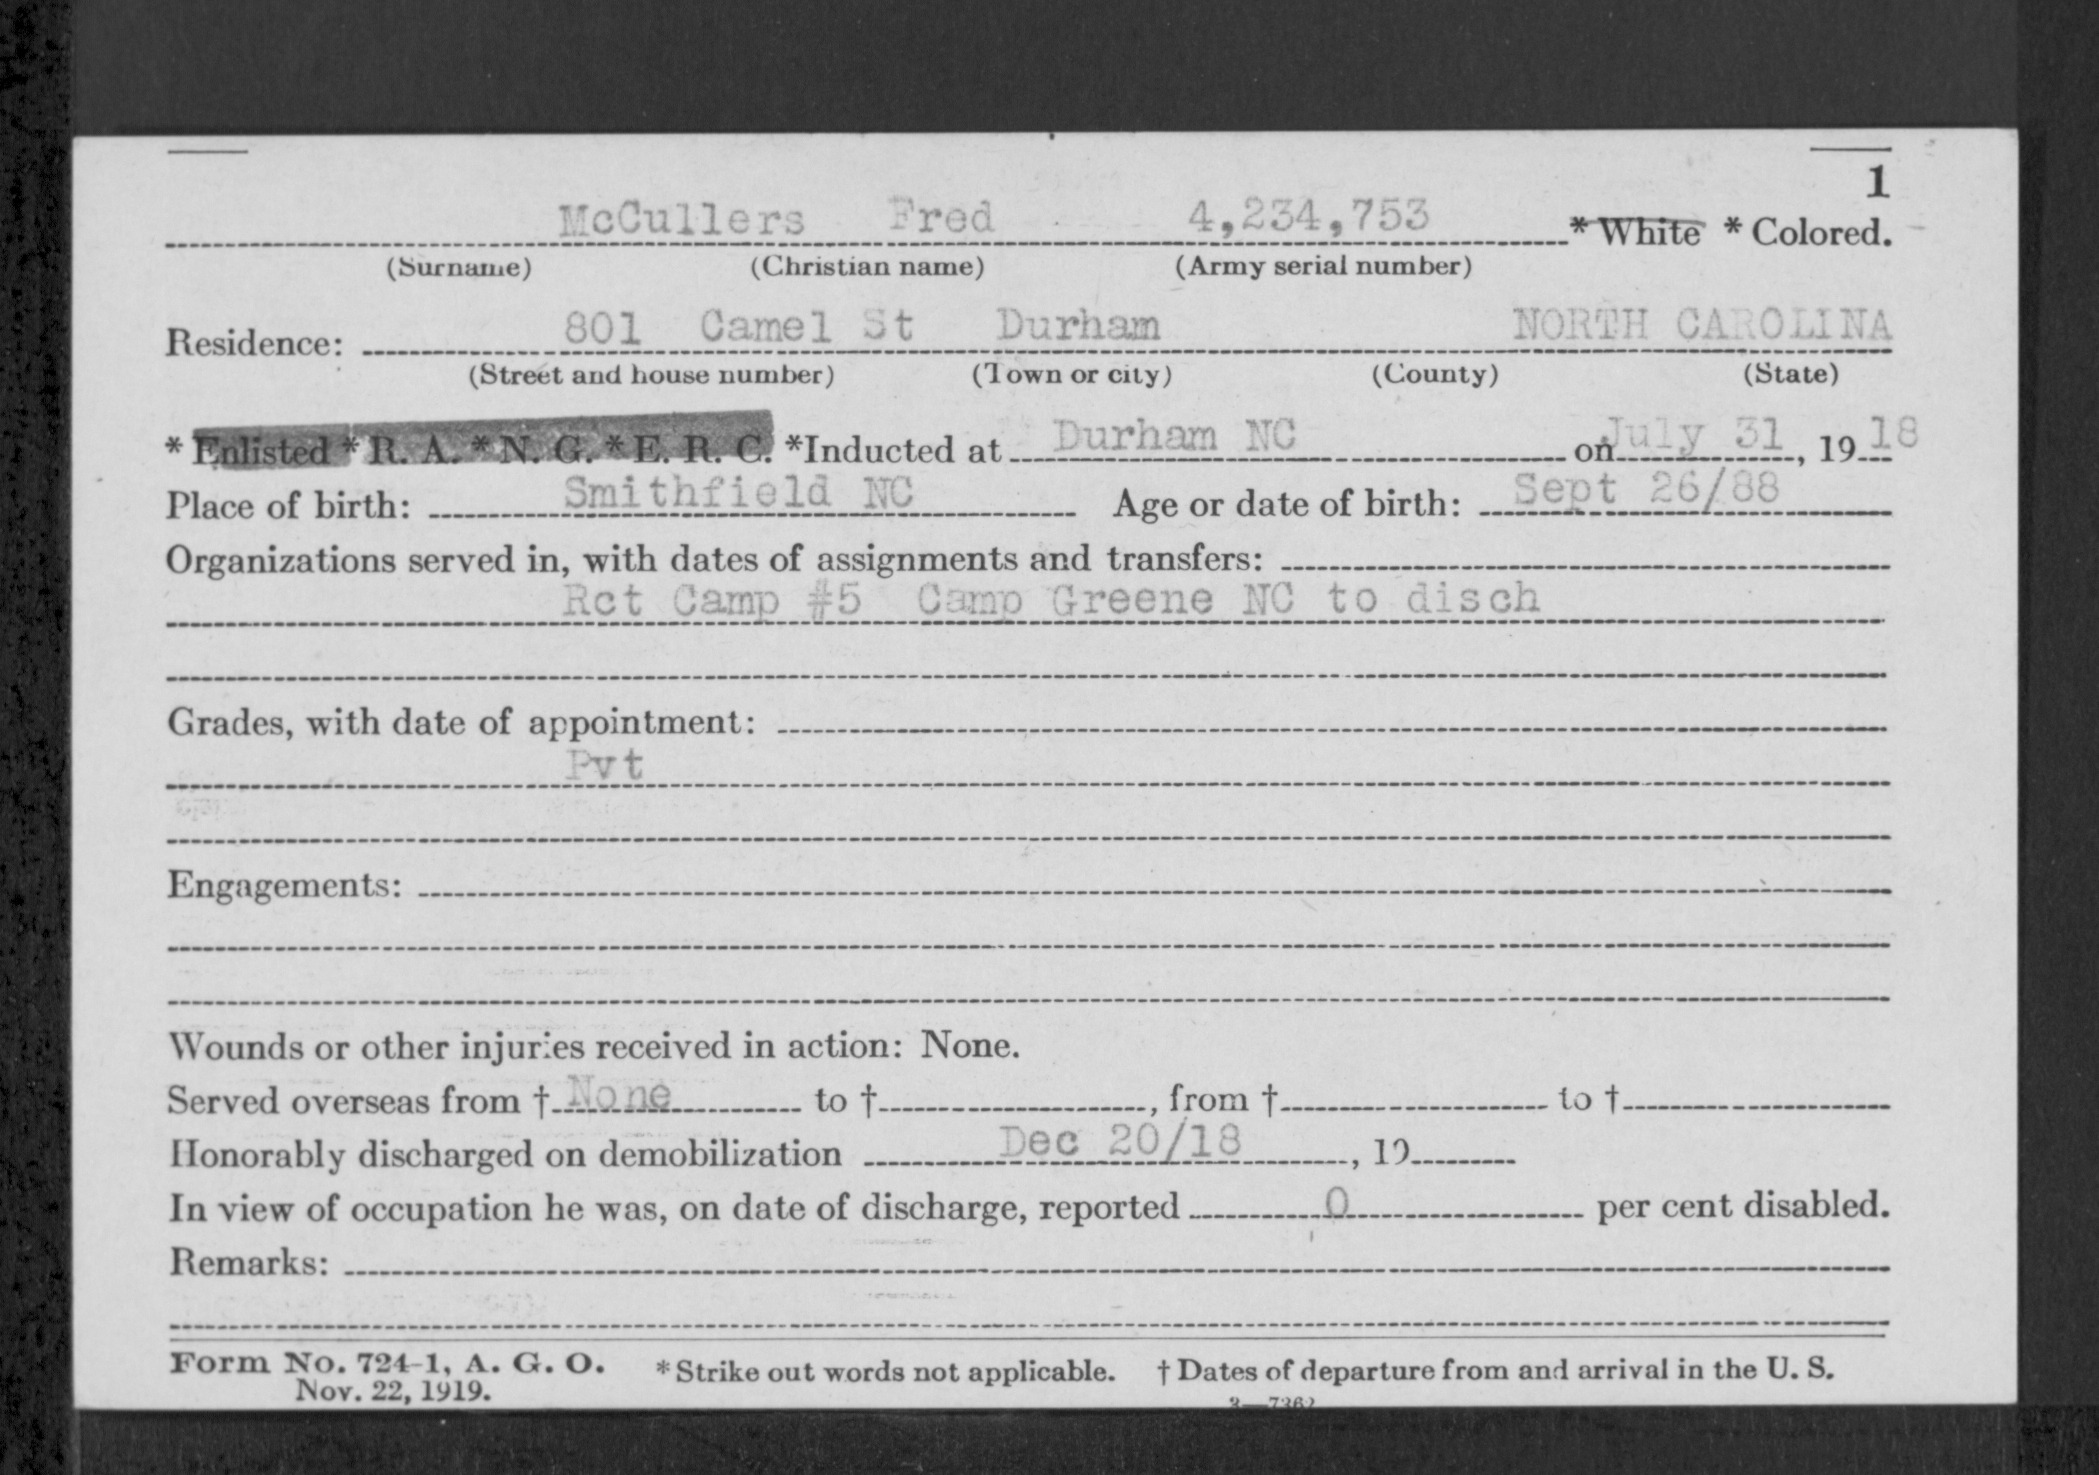 1
McCullers Fred 4,234,753 * White * Colored.
(Surname) (Christian name) (Army serial number)
Residence: 801 Camel St Durham NORTH CAROLINA
(Street and house number) (Town or city) (County) (State)
* Enlisted * R. A. * N. G. * E. R. C. *Inducted at Durham NC on July 31, 1918
Place of birth: Smithfield NC Age or date of birth: Sept 26/88
Organizations served in, with dates of assignments and transfers:
Rct Camp #5 Camp Greene NC to disch
Grades, with date of appointment:
Pvt
Engagements:
Wounds or other injuries received in action: None.
Served overseas from † None to †, from † to †
Honorably discharged on demobilization Dec 20/18, 19
In view of occupation he was, on date of discharge, reported 0 per cent disabled.
Remarks:
Form No. 724-1, A. G. O. * Strike out words not applicable. † Dates of departure from and arrival in the U. S.
Nov. 22, 1919.
3—7362